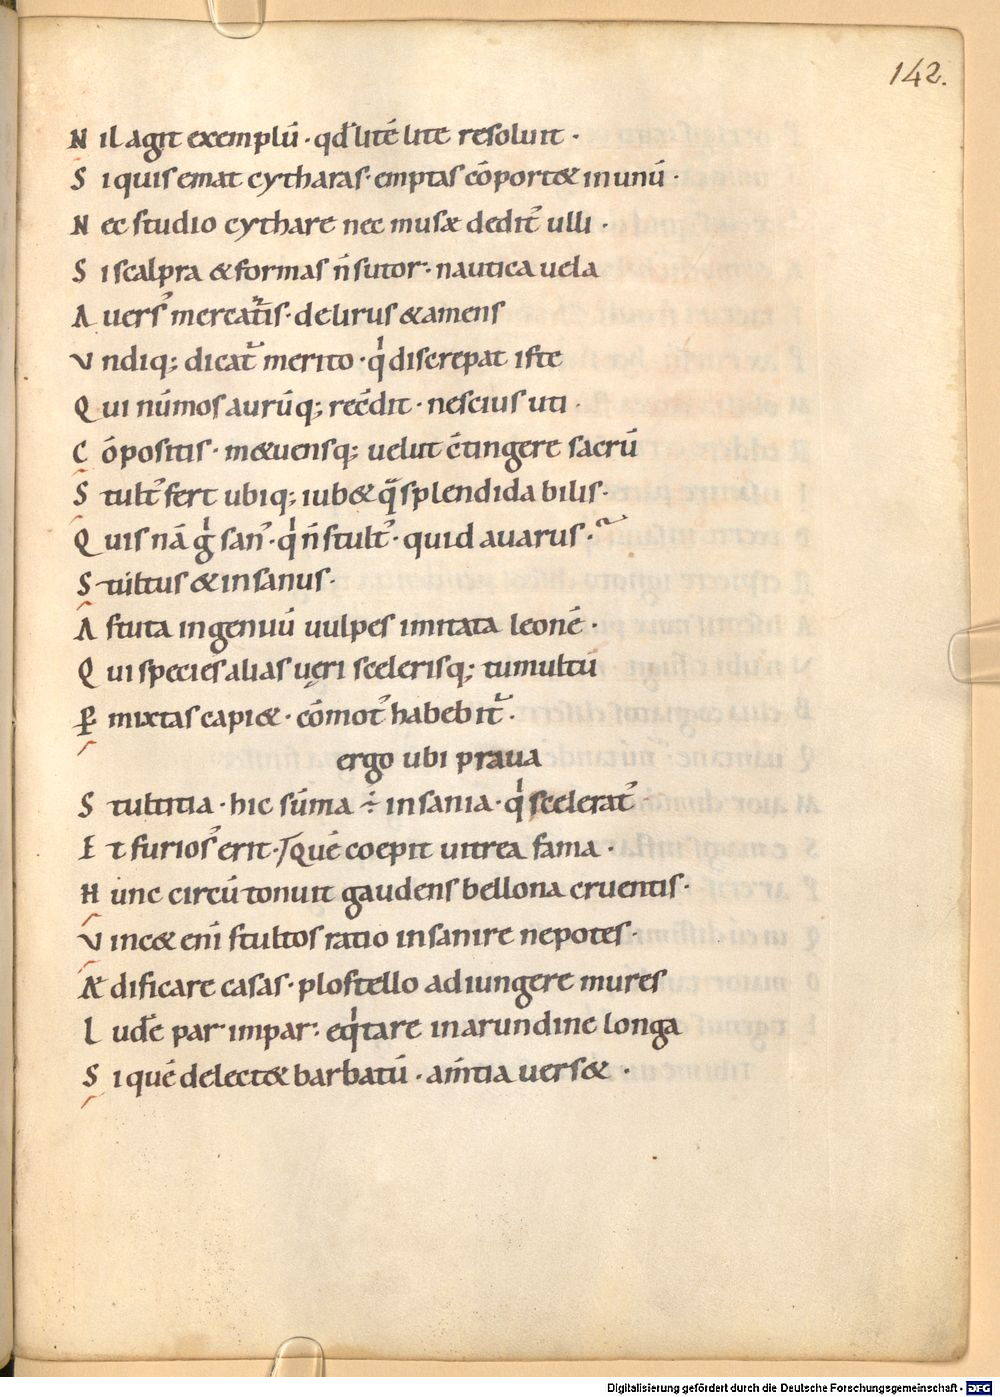 142.
N il agit exemplū · qđ litē lite resoluit ·
S i quis emat cytharas · emptas cōport& in unū ·
N ec studio cythare nec musæ dedit᾽ ulli ·
S i scalpra & formas ñ sutor · nautica uela
A uers᾽ mercat̄is · delirus & amens
V ndiq; dicat᷑ merito · qͥ discrepat iste
Q ui nūmos aurūq; recōdit · nescius uti ·
C ōpositis · m&uensq; uelut cōtingere sacrū
S tult᾽ fert ubiq; iub& qͣ splendida bilis ·
Q uis nā gͥ san᾽ · qͥ ñ stult᾽ · quid auarus ·
S tultus & insanus ·
A stuta ingenuū uulpes imitata leonē ·
Q ui species alias ueri scelerisq; tumultū
P̱ mixtas capi& · cōmot᾽ habebit᷑ ·
ergo ubi praua
S tultitia · hic sūma ÷ insania · qͥ scelerat᾽
E t furios᾽ erit · / Quē coepit uitrea fama ·
H unc circū tonuit gaudens bellona cruentis ·
V inc& eni᷄ stultos ratio insanire nepotes ·
Æ dificare casas · plostello adiungere mures
L udē par · impar · eqͥtare in arundine longa
S i quē delect& barbatū · am̄tia uers& ·
Digitalisierung gefördert durch die Deutsche Forschungsgemeinschaft - DFG